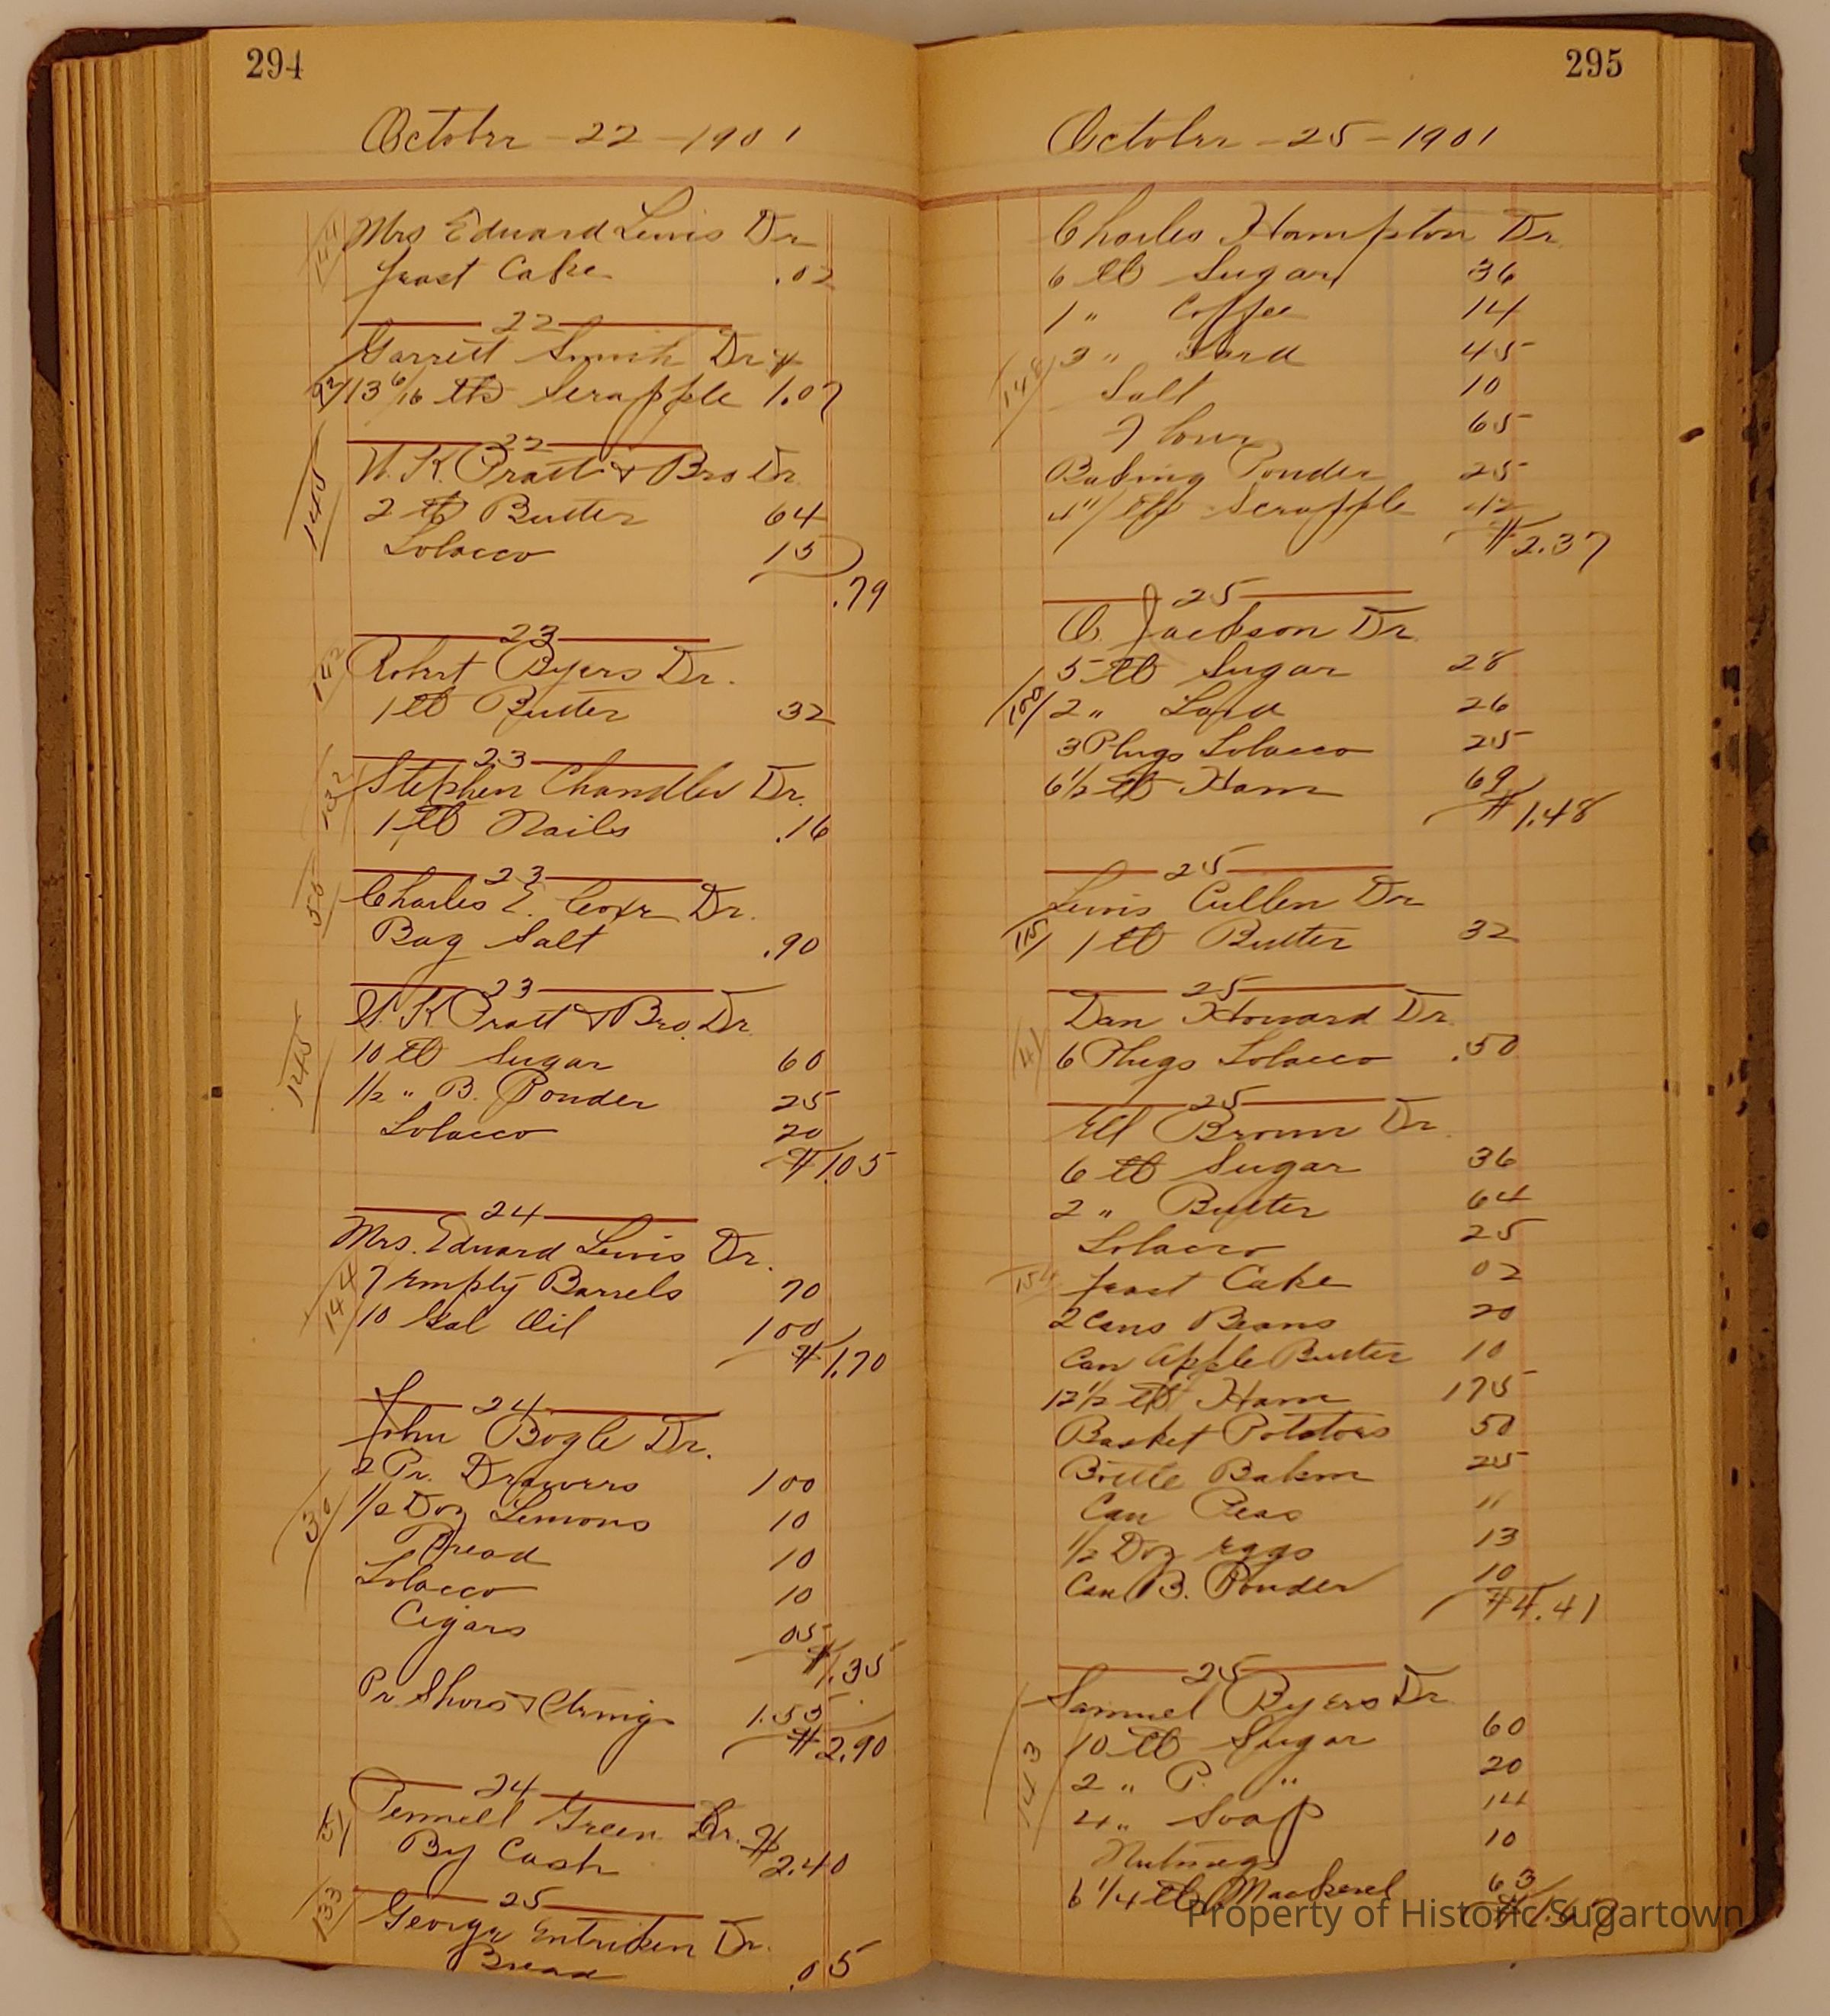 294
October - 22 - 1901
144
Mrs Edward Lewis Dr
Yeast Cake .02
22
Garrett Smith Dr $
13 6/16 lbs Scrapple 1.07
22
W. K. Pratt & Bro Dr.
145
2 lb Butter 64
Tobacco 15
.79
23
142
Robert Byers Dr.
1 lb Butter 32
23
132
Stephen Chandler Dr.
1 lb Nails .16
23
Charles E. Dr.
Bag Salt .90
23
W. K Pratt & Bro. Dr
145
10 lb Sugar 60
1/2 " B. Powder 25
Tobacco 20
$1.05
24
Mrs. Edward Lewis Dr.
144
7 Empty Barrels 70
10 Gal Oil 100
$1.70
24
John Bogle Dr.
2 Pr. Drawers 100
30
1/2 Doz Lemons 10
Bread 10
Tobacco 10
Cigars 05
$1.35
Pr Shoes & 1.55
$2.90
24
51
Pennell Green Cr. $
By Cash 2.40
25
133
George Entriken Dr.
Bread .05
295
October - 25 - 1901
Charles Hampton Dr.
6 lb Sugar 36
1 " Coffee 14
148
3 " Lard 45
Salt 10
Flour 65
Baking Powder 25
4 " Scrapple 42
$2.37
25
O. Jackson Dr.
5 lb Sugar 28
100
2 " Lard 26
3 Plugs Tobacco 25
6 1/2 lb Ham 69
$1.48
25
Lewis Cullen Dr
115
1 lb Butter 32
25
Dan Howard Dr.
41
6 Plugs Tobacco .50
25
Ell Brown Dr.
6 lb Sugar 36
2 " Butter 64
Tobacco 25
154
Yeast Cake 02
2 Cans Beans 20
Can Apple Butter 10
12 1/2 lb Ham 175
Basket Potatoes 50
Bottle 25
Can Peas 11
1/2 Doz Eggs 13
Can B. Powder 10
$4.41
25
Samuel Byers Dr.
10 lb Sugar 60
143
2 " P. " 20
4 " Soap 14
Nutmegs 10
6 1/4 lb Mackerel 63
Property of Historic Sugartown